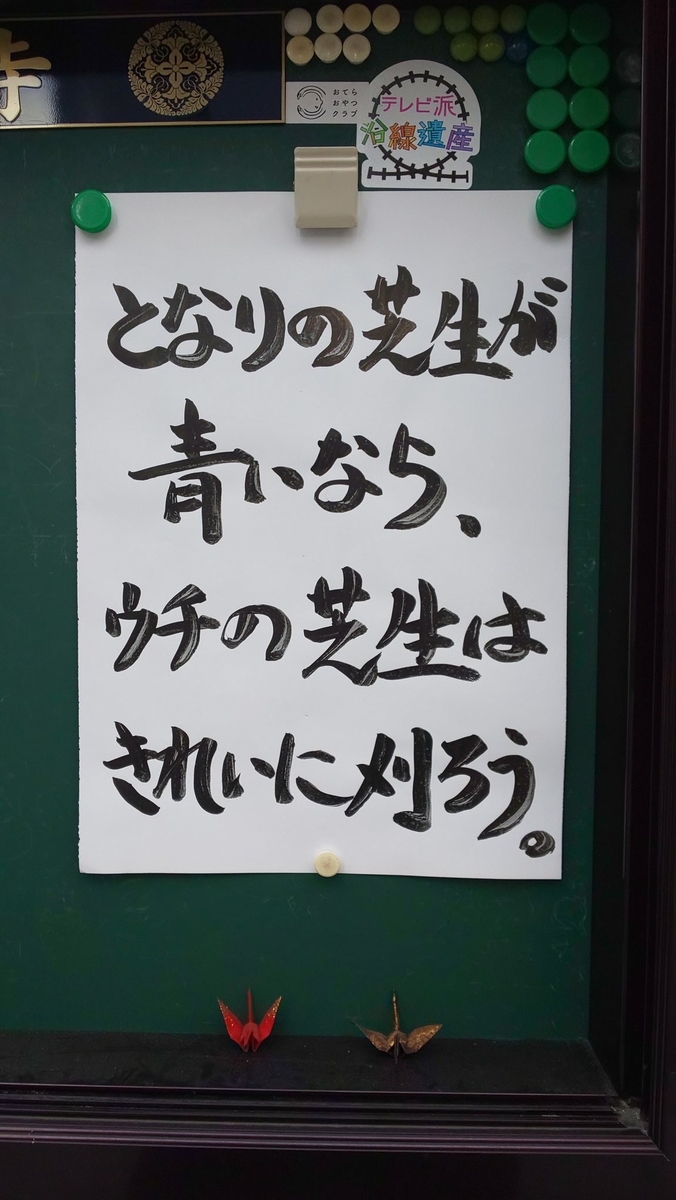 寺
おてら
おやつ
クラブ
テレビ派
沿線遺産
となりの芝生が
青いなら、
ウチの芝生は
きれいに刈ろう。